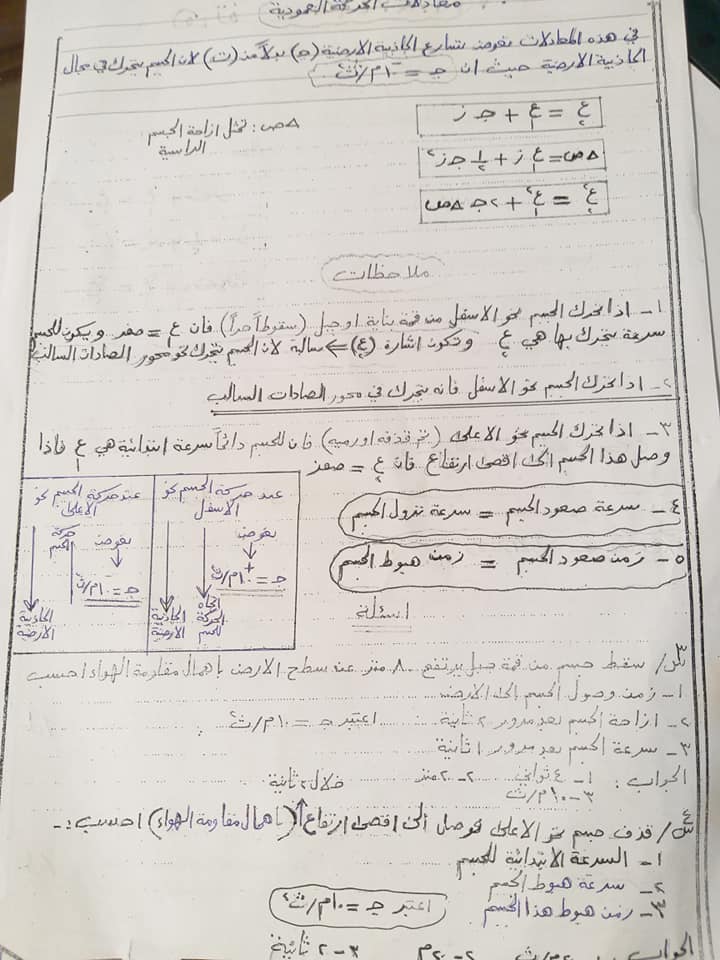 معادلات الحركة العمودية
في هذه المعادلات يعوض بتسارع الجاذبية الارضية (جـ) بدلاً من (ت) لان الجسم يتحرك في مجال
الجاذبية الارضية حيث ان جـ = ١٠ م/ث٢
ع٢ = ع١ + جـ ز
Δص = ع١ ز + ١/٢ جـ ز٢
ع٢٢ = ع١٢ + ٢ جـ Δص
Δص : تمثل ازاحة الجسم
الراسية
ملاحظات
١- اذا تحرك الجسم نحو الاسفل من قمة بناية او جبل (سقوطاً حراً) فان ع١ = صفر ويكون للجسم
سرعة يتحرك بها هي ع٢ وتكون اشارة (ع٢) سالبة لان الجسم يتحرك نحو محور الصادات السالب
٢- اذا تحرك الجسم نحو الاسفل فانه يتحرك في محور الصادات السالب
٣- اذا تحرك الجسم نحو الاعلى (تم قذفه او رميه) فان للجسم دائماً سرعة ابتدائية هي ع١ فاذا
وصل هذا الجسم الى اقصى ارتفاع فان ع٢ = صفر
٤- سرعة صعود الجسم = سرعة نزول الجسم
٥- زمن صعود الجسم = زمن هبوط الجسم
عند حركة الجسم نحو
الاسفل
نعوض
جـ = +١٠ م/ث٢
اتجاه
الحركة
للجسم
الجاذبية
الارضية
عند حركة الجسم نحو
الاعلى
حركة
الجسم
نعوض
جـ = -١٠ م/ث٢
الجاذبية
الارضية
اسئلة
س٣/ سقط جسم من قمة جبل يرتفع ٨٠ متر عن سطح الارض باهمال مقاومة الهواء احسب
١- زمن وصول الجسم الى الارض
٢- ازاحة الجسم بعد مرور ٢ ثانية اعتبر جـ = ١٠ م/ث٢
٣- سرعة الجسم بعد مرور ١ ثانية
الجواب : ١- ٤ ثواني ٢- ٢٠ متر
٣- ١٠ م/ث
خلال ٢ ثانية
س٤/ قذف جسم نحو الاعلى فوصل الى اقصى ارتفاع (باهمال مقاومة الهواء) احسب :-
١- السرعة الابتدائية للجسم
٢- سرعة هبوط الجسم
٣- زمن هبوط هذا الجسم
اعتبر جـ = ١٠ م/ث٢
الجواب : م/ث ٢- ٢٠ م ٣- ٢ ثانية